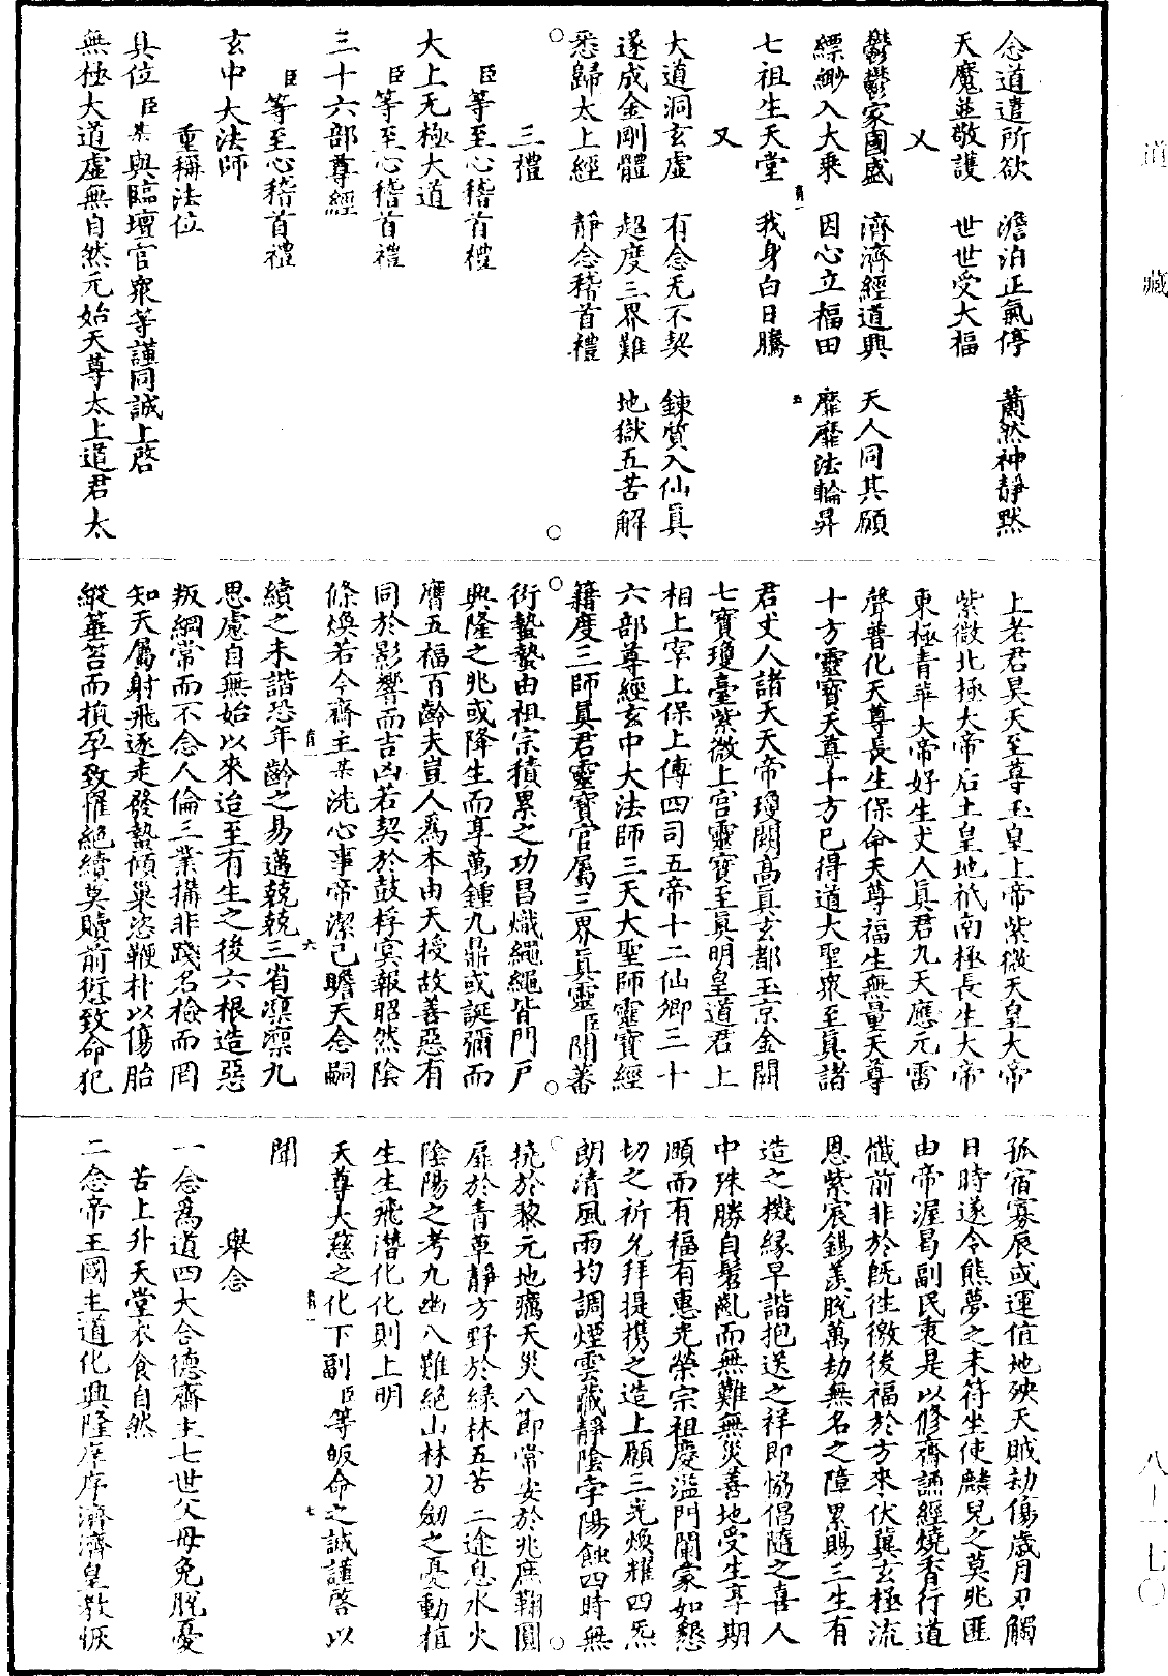 道藏
念道遣所欲　澹泊正氣停　蕭然神靜默
天魔並敬護　世世受大福
又
鬱鬱家國盛　濟濟經道興　天人同其願
縹緲入大乘　因心立福田　靡靡法輪昇
七祖生天堂　我身白日騰
又
大道洞玄虛　有念无不契　鍊質入仙真
遂成金剛體　超度三界難　地獄五苦解
悉歸太上經　靜念稽首禮
三禮
臣等至心稽首禮
大上无極大道
臣等至心稽首禮
三十六部尊經
臣等至心稽首禮
玄中大法師
重稱法位
具位臣某與臨壇官衆等謹同誠上啓
無極大道虛無自然元始天尊太上道君太
上老君昊天至尊玉皇上帝紫微天皇大帝
紫微北極大帝后土皇地祇南極長生大帝
東極青華大帝好生丈人真君九天應元雷
聲普化天尊長生保命天尊福生無量天尊
十方靈寶天尊十方已得道大聖衆至真諸
君丈人諸天天帝瓊闕高真玄都玉京金闕
七寶瓊臺紫微上宮靈寶至真明皇道君上
相上宰上保上傅四司五帝十二仙卿三十
六部尊經玄中大法師三天大聖師靈寶經
籍度三師真君靈寶官屬三界真靈臣聞蕃
衍蟄蟄由祖宗積累之功昌熾繩繩皆門戶
興隆之兆或降生而享萬鍾九鼎或誕彌而
膺五福百齡夫豈人爲本由天授故善惡有
同於影響而吉凶若契於鼓桴冥報昭然陰
條煥若今齋主某洗心事帝潔己瞻天念嗣
續之未諧恐年齡之易邁兢兢三省凛凛九
思慮自無始以來迨至有生之後六根造惡
叛綱常而不念人倫三業搆非踐名檢而罔
知天屬射飛逐走發蟄傾巢恣鞭朴以傷胎
縱箠笞而損孕致罹絕續莫贖前愆致命犯
孤宿寡辰或運值地殃天賊劫傷歲月刃觸
日時遂令熊夢之未符坐使麟兒之莫兆匪
由帝渥曷副民衷是以修齋誦經燒香行道
懺前非於既往徼後福於方來伏冀玄極流
恩紫宸錫羨脫萬劫無名之障累賜三生有
造之機緣早諧抱送之祥即恊倡隨之喜人
中殊勝自髫齓而無難無災善地受生享期
頤而有福有惠光榮宗祖慶溢門闌蒙如懇
切之祈允拜提携之造上願三光煥耀四炁
朗清風雨均調煙雲藏靜陰孛陽蝕四時無
抗於黎元地癘天災八節常安於兆庶鞠圜
扉於青草靜方野於綠林五苦三途息水火
陰陽之考九幽八難絕山林刀劒之憂動植
生生飛潛化化則上明
天尊大慈之化下副臣等皈命之誠謹啓以
聞
舉念
一念爲道四大合德齋主七世父母免脫憂
苦上升天堂衣食自然
二念帝王國主道化興隆庠序濟濟皇教恢
八–一七〇